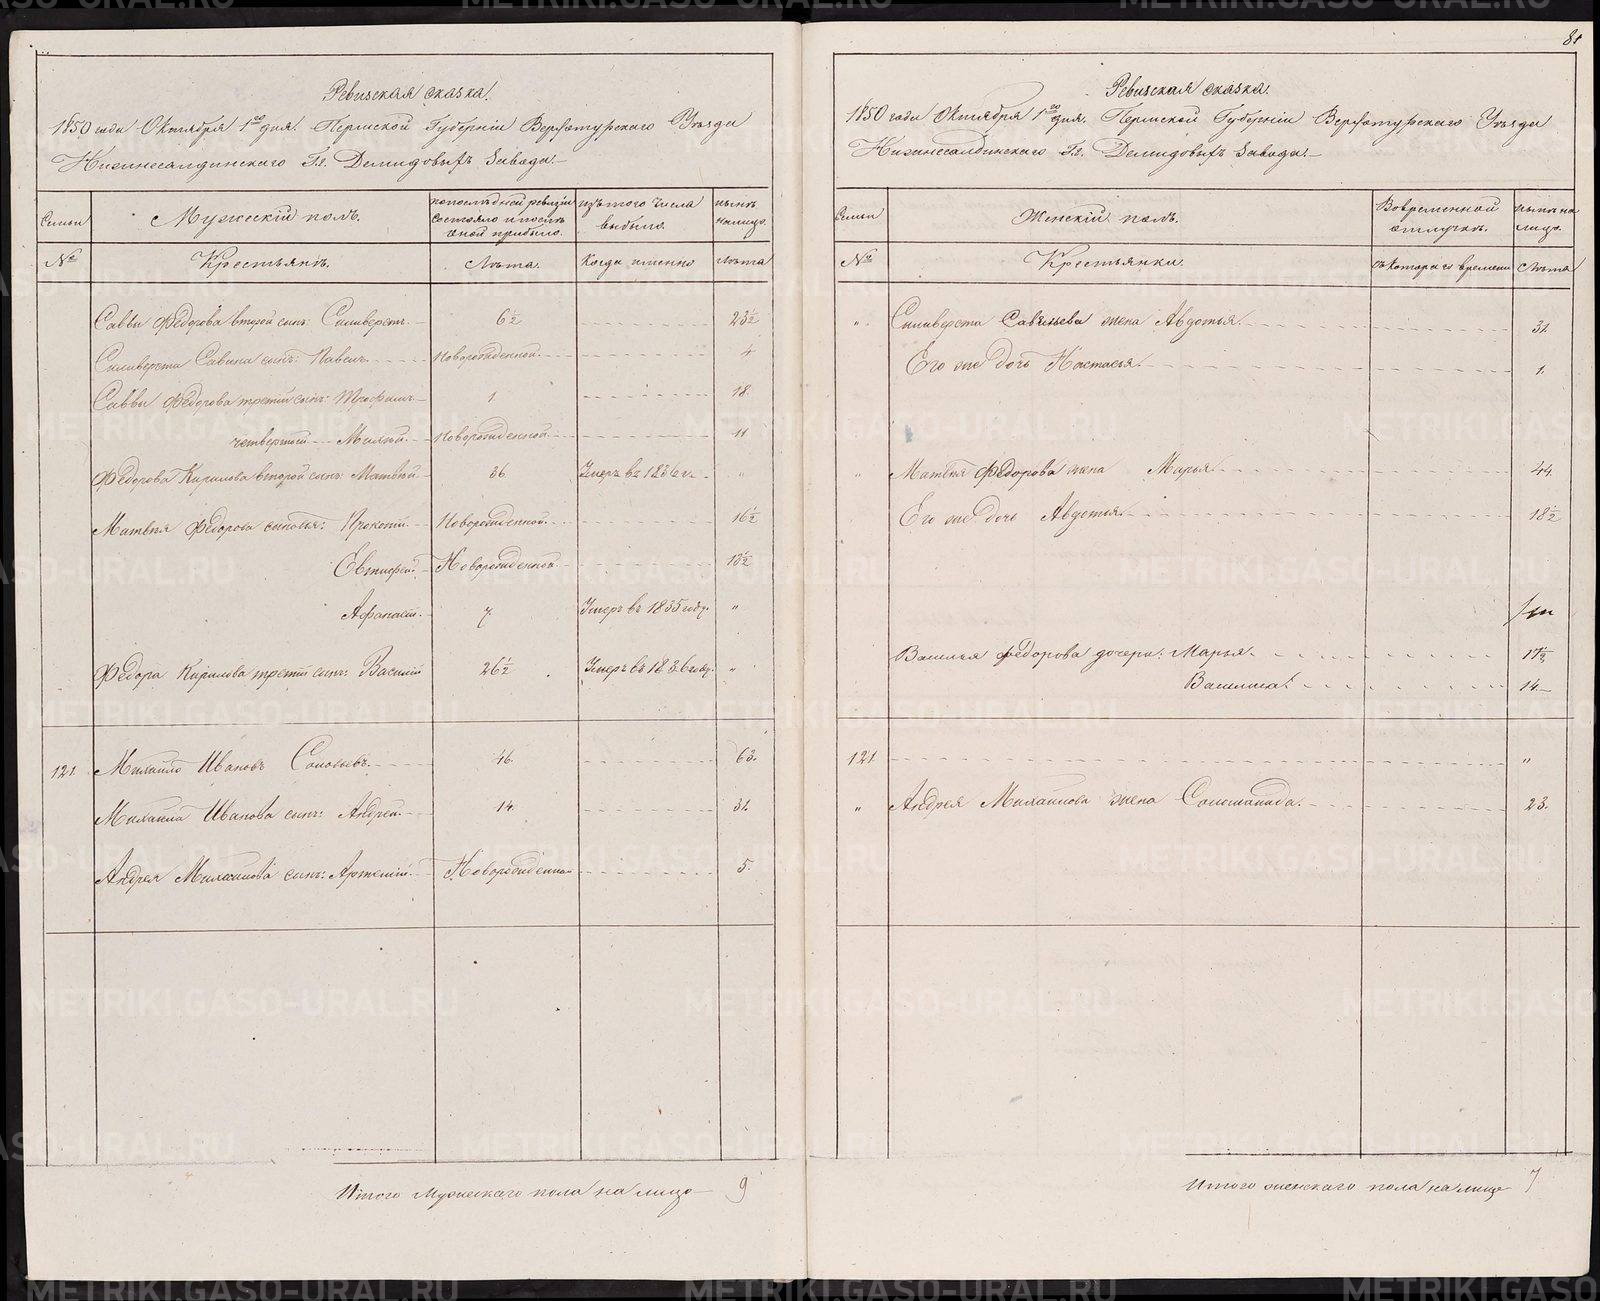 Ревизская сказка.
1850 года Октября 1го дня. Пермской Губернiи Верхотурскаго Уѣзда
Нижнесалдинскаго Гг. Демидовыхъ Завода.
Семьи
Мужескiй полъ.
по последней ревизiи состояло и после оной прибыло.
изъ того числа выбыло
нынѣ налицо.
№
Крестьянъ.
Лѣта.
Когда именно
Лѣта
Саввы Федорова второй сынъ: Сильверстъ. 6½ 23½
Сильверста Савина сынъ: Павелъ. Новорожденной 4
Саввы Федорова третiй сынъ: Трофимъ 1. 18.
четвертой Новорожденной 11
Федорова Кирилова второй сынъ: Матвѣй 36. Умеръ въ 1836 г. "
Матвѣя Федорова сыновья: Прокопiй. Новорожденной 16½
Евтифей Новорожденной 13½
Афанасiй. 7. Умеръ въ 1835 году. "
Федора Кирилова третiй сынъ: Василiй 26½ Умеръ въ 1836 году. "
121. Михайло Ивановъ Соловьевъ. 46. 63.
Михаила Иванова сынъ: Андрей. 14. 31.
Андрея Михаилова сынъ: Артемiй. Новорожденной 5.
Итого Мужескаго пола на лицо 9
81
Ревизская сказка.
1850 года Октября 1го дня. Пермской Губернiи Верхотурскаго Уѣзда
Нижнесалдинскаго Гг. Демидовыхъ Завода.
Семьи
Женскiй полъ.
Во временной отлучке.
нынѣ на лицо.
№
Крестьянки.
съ котораго времени
Лѣта
" Сильверста Савельева жена Авдотья. 31.
Его же дочь Настасья. 1.
" Матвѣя Федорова жена Марья 44.
Его же дочь Авдотья 18½
Василья Федорова дочери: Марья. 17½
Василиса. 14.
121. "
" Андрея Михаилова жена Соломонида. 23.
Итого женскаго пола на лицо 7
METRIKI.GASO-URAL.RU